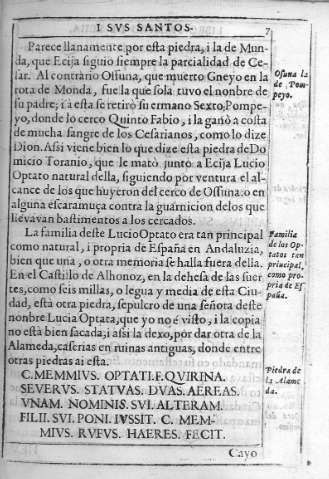 I SVS SANTOS.
7
Parece llanamente por esta piedra, i la de Mun-
da, que Ecija siguio siempre la parcialidad de Ce-
sar. Al contrario Ossuna, que muerto Gneyo en la
rota de Monda, fue la que sola tuvo el nonbre de
su padre; i a esta se retirò su ermano Sexto Pompe-
yo, donde lo cerco Quinto Fabio, i la ganò a costa
de mucha sangre de los Cesarianos, como lo dize
Dion. Assi viene bien lo que dize esta piedra de Do
micio Toranio, que le matò junto a Ecija Lucio
Optato natural della, siguiendo por ventura el al-
cance de los que huyeron del cerco de Ossuna: o en
alguna escaramuça contra la guarnicion delos que
llevavan bastimentos a los cercados.
La familia deste Lucio Optato era tan principal
como natural, i propria de España en Andaluzia,
bien que una, o otra memoria se halla fuera della.
En el Castillo de Alhonoz, en la dehesa de las suer
tes, como seis millas, o legua y media de esta Ciu-
dad, està otra piedra, sepulcro de una señora deste
nonbre Lucia Optata, que yo no é visto, i la copia
no està bien sacada; i assi la dexo, por dar otra de la
Alameda, caserias en ruinas antiguas, donde entre
otras piedras ai esta.
C. MEMMIVS. OPTATI. F. QVIRINA.
SEVERVS. STATVAS. DVAS. AEREAS.
VNAM. NOMINIS. SVI. ALTERAM.
FILII. SVI. PONI. IVSSIT. C. MEM-
MIVS. RVFVS. HAERES. FECIT.
Cayo
Ossuna la
de Pom-
peyo.
Familia
de los Op-
tatos tan
principal,
como pro-
pria de Es
paña.
Piedra de
la Alame
da.